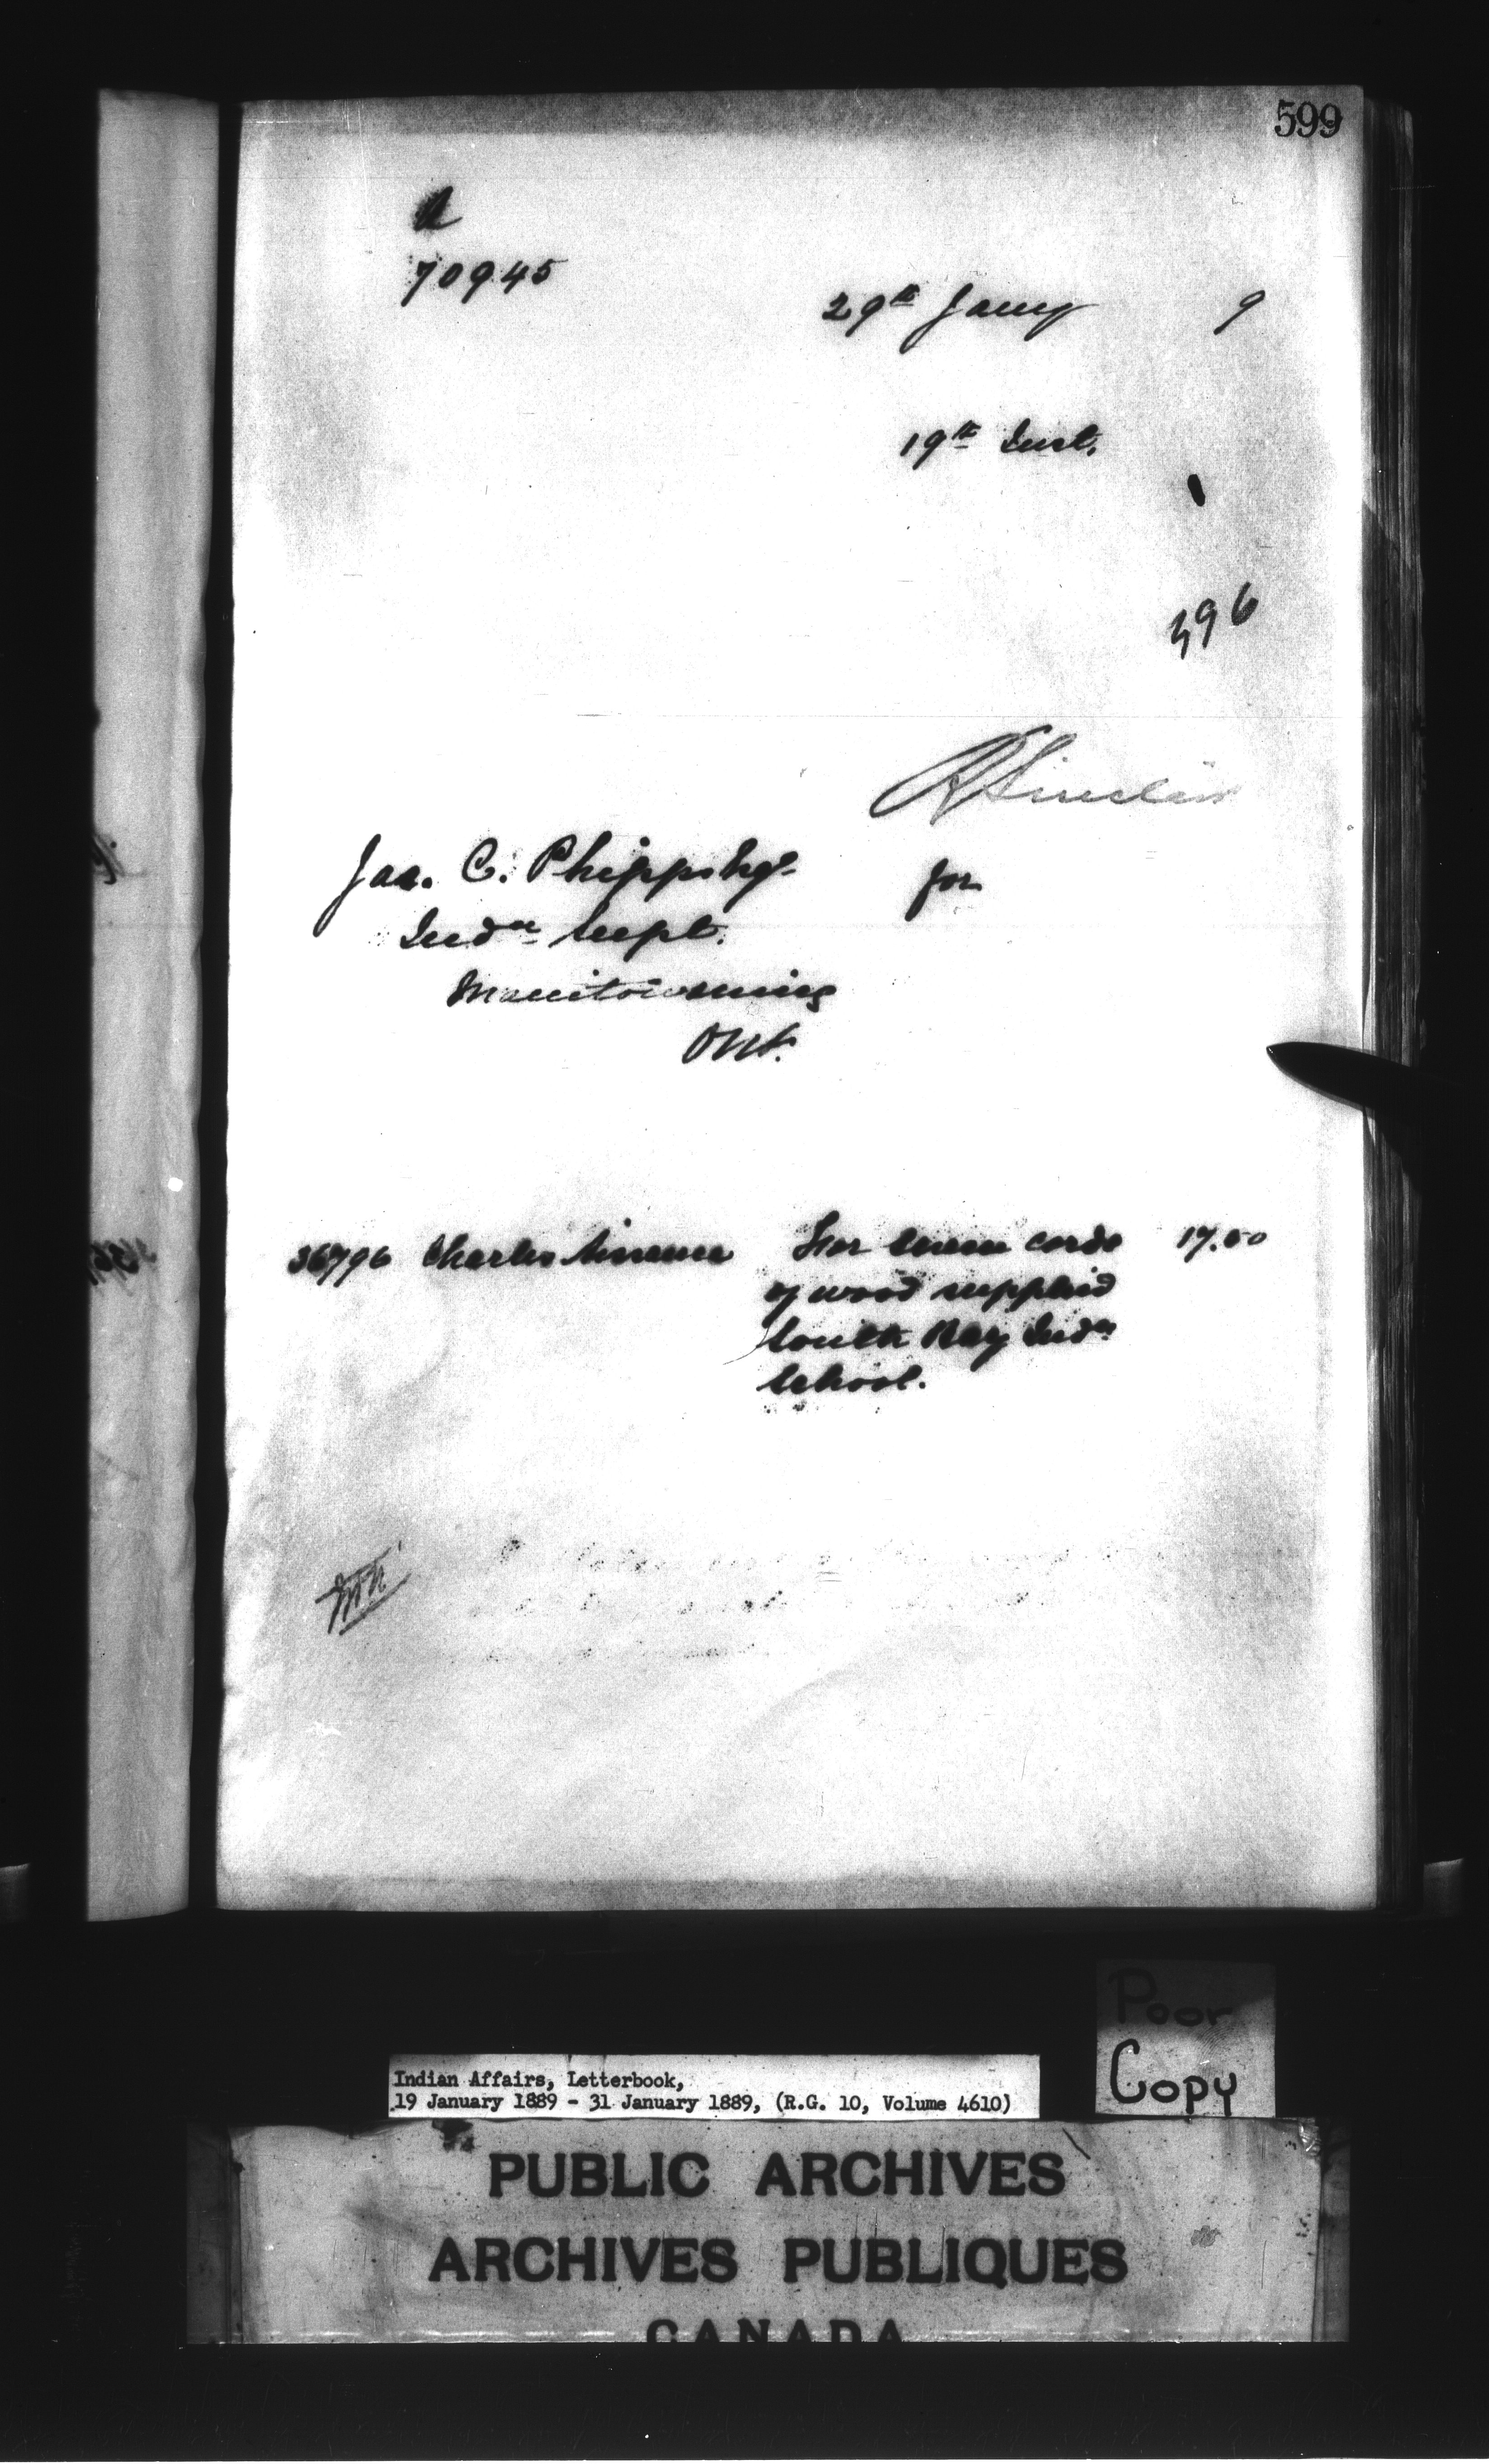 599
70945
29th Jany 9
19th Inst.
396
R Sinclair
Jas. C. Phipps Esq.
for
Indn Supt.
Manitowaning
Ont.
36796 Charles For seven cords 17.50
of wood supplied
South Bay Indn
School.
Poor
Copy
Indian Affairs, Letterbook,
19 January 1889 - 31 January 1889, (R.G. 10, Volume 4610)
PUBLIC ARCHIVES
ARCHIVES PUBLIQUES
CANADA